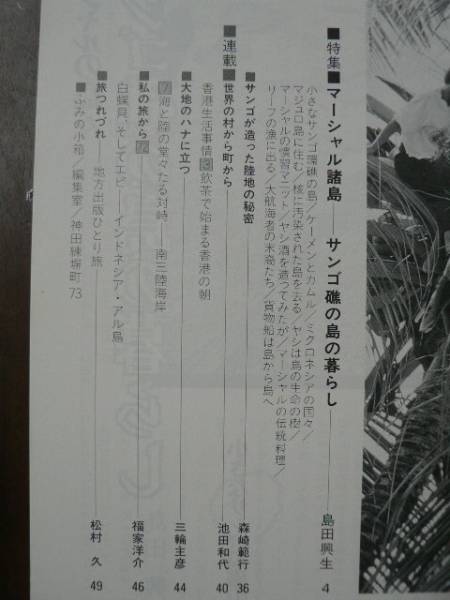 ■特集■マーシャル諸島——サンゴ礁の島の暮らし——島田興生 4
小さなサンゴ環礁の島／ケーメンとカムル／ミクロネシアの国々／
マジュロ島に住む／核に汚染された島を去る／ヤシは島の生命の樹／
マーシャルの慣習マニット／ヤシ酒を造ってみたが／マーシャルの伝統料理／
リーフの漁に出る／大航海者の末裔たち／貨物船は島から島へ
■サンゴが造った陸地の秘密——森崎範行 36
■連載■世界の村から町から——池田和代 40
香港生活事情 飲茶で始まる香港の朝
■大地のハナに立つ——三輪主彦 44
海と陸の堂々たる対峙——南三陸海岸
■私の旅から——福家洋介 46
白蝶貝、そしてエビ——インドネシア・アル島
■旅つれづれ——地方出版ひとり旅——松村 久 49
■ふみの小箱／編集室／神田練塀町73